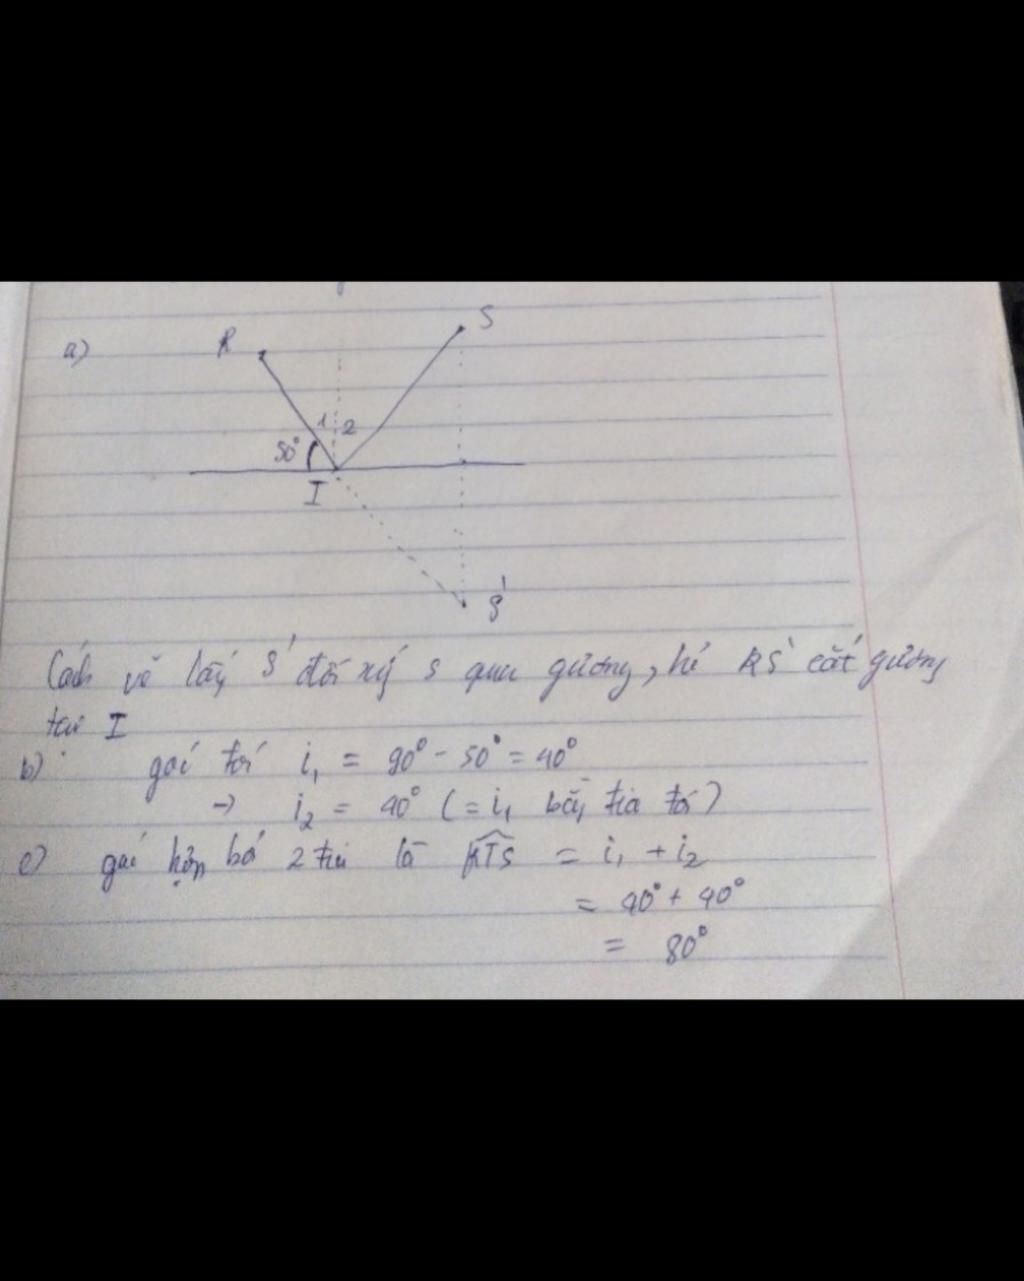 a)
R
S
1 2
50°
I
S'
Cách vẽ lấy S' đối xứ S qua gương, kẻ RS' cắt gương
tại I
b) góc tới i₁ = 90° - 50° = 40°
→ i₂ = 40° (= i₁ bằng tia tới)
c) góc hợp bở 2 tia là RIS = i₁ + i₂
= 40° + 40°
= 80°